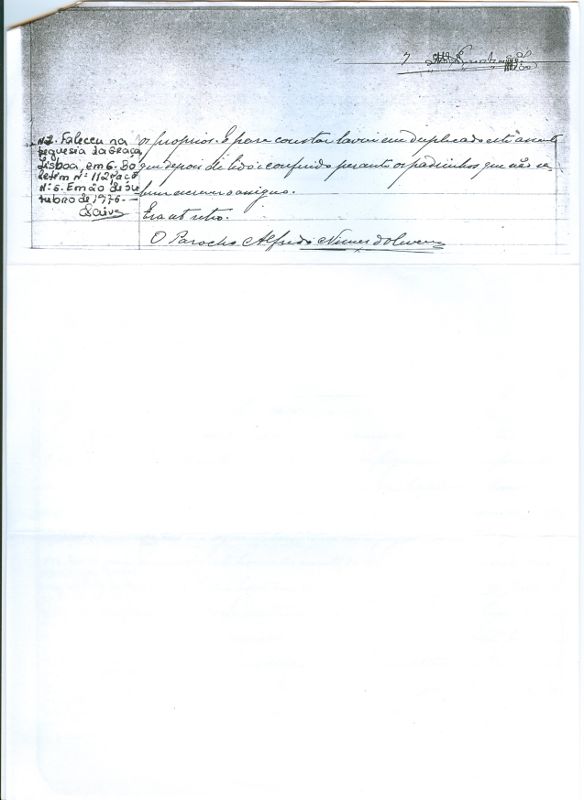 7
Nº 2. Faleceu na
freguesia da Graça
Lisboa, em 6. Bo
letim nº 112 maço
Nº 6. Em 20 de ou
tubro de 1976. —
os proprios. E para constar lavrei em duplicado este assento
que depois de lido e conferido perante os padrinhos que não sa
bem escrever assigno.
Era ut retro.
O Parocho Alfredo Nunes d'Oliveira